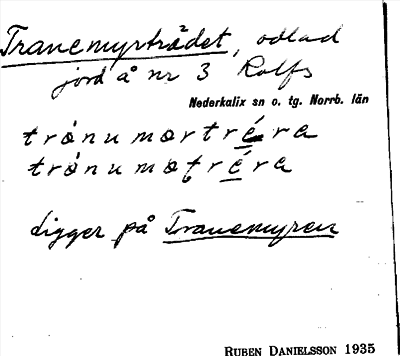 Tranemyrträdet, odlad
jord å nr 3 Rolfs
Nederkalix sn o. tg. Norrb. län
trånumortréra
trånumotréra
ligger på Tranemyren
RUBEN DANIELSSON 1935